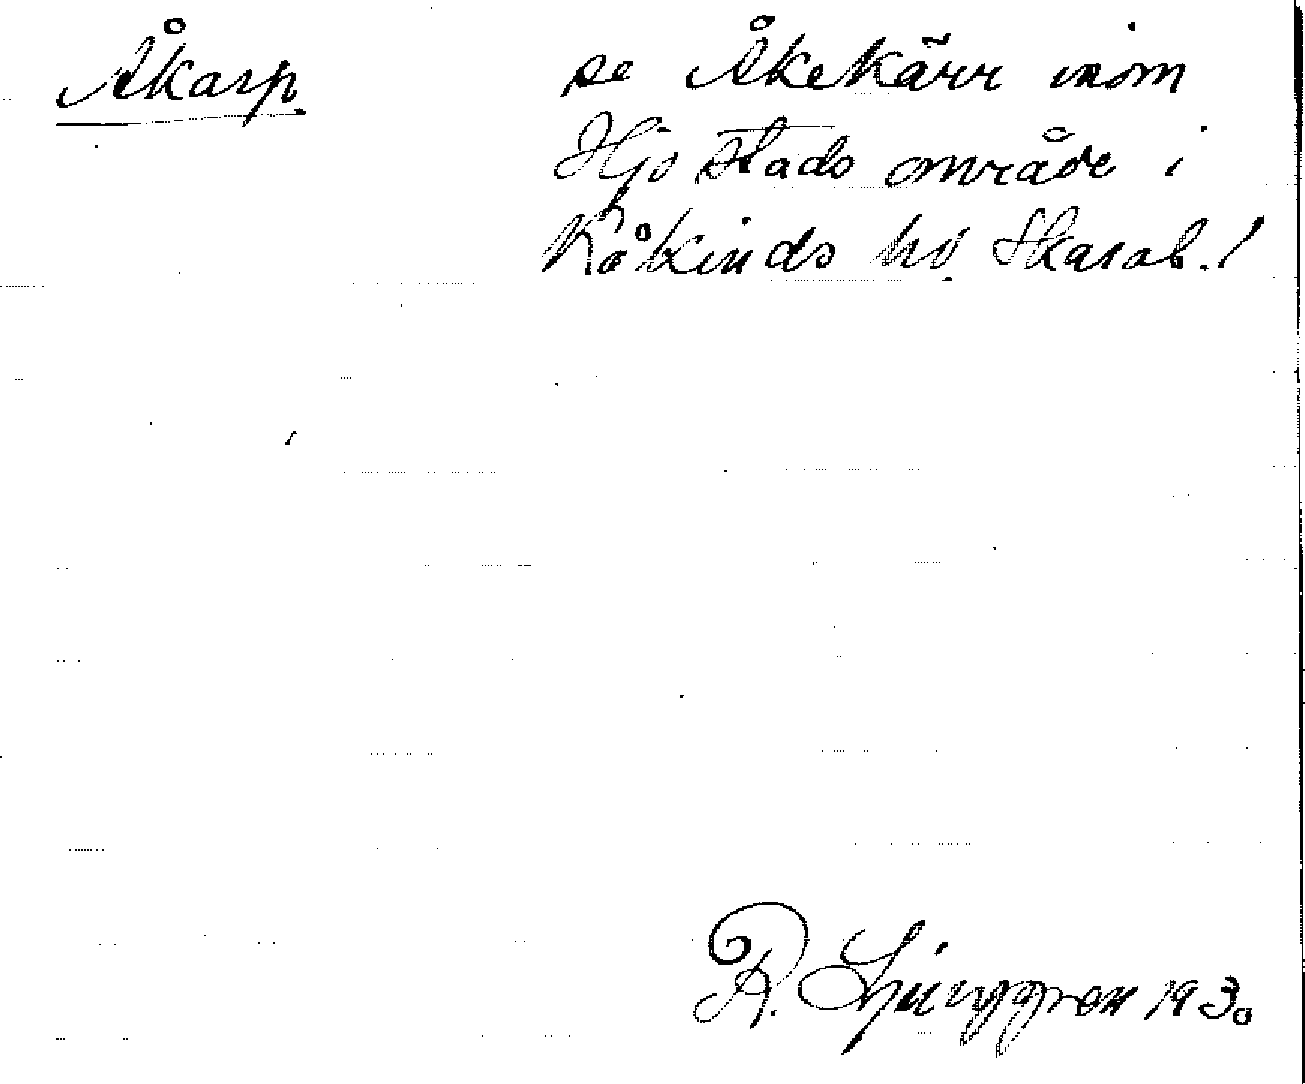 Åkarp se Åkekärr inom
Hjo stads område i
Kåkinds hd Skarab. l
R. Ljunggren 1930